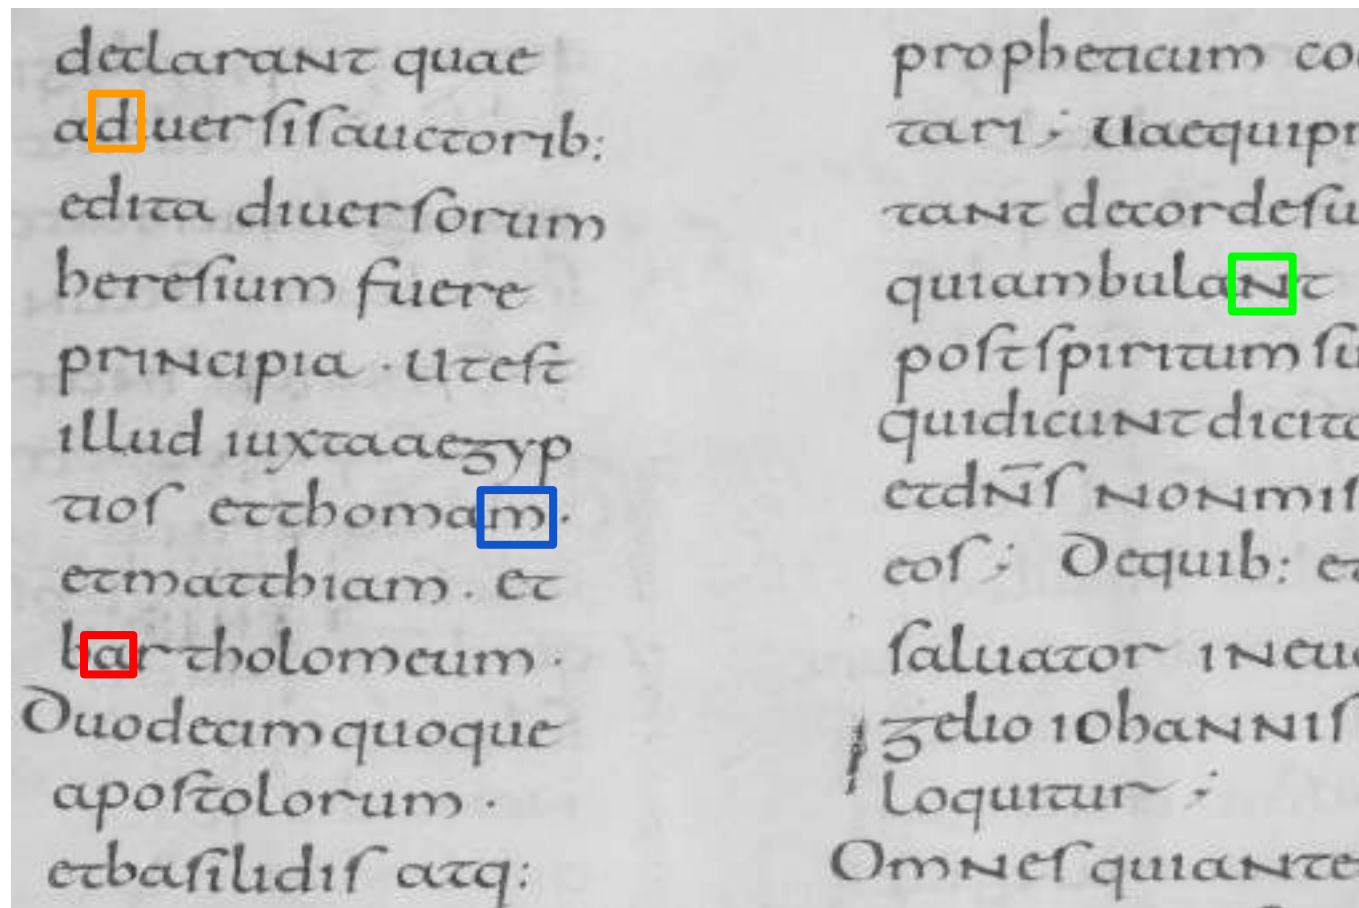 declarant quae
adiuersis auctorib:
edita diuersorum
heresium fuere
principia · Ut est
illud iuxta aegyp
tios et thomam ·
et matthiam · et
bartholomeum ·
Duodecim quoque
apostolorum ·
et basilidis atq:
propheticum co
tari ; Uae qui pr
tant de corde su
qui ambulant
post spiritum su
qui dicunt dicit
et dn̄s non mis
eos ; De quib: et
saluator in eu
gelio iohannis
loquitur ;
Omnes qui ante